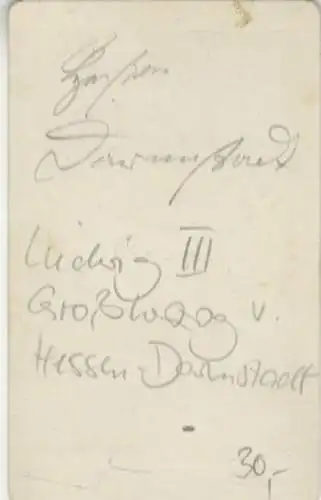 Hessen
Darmstadt
Ludwig III
Großherzog v.
Hessen-Darmstadt
30,-